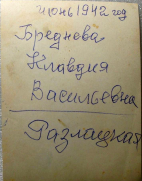 июнь 1942 год
Бреднева
Клавдия
Васильевна
Разлацкая